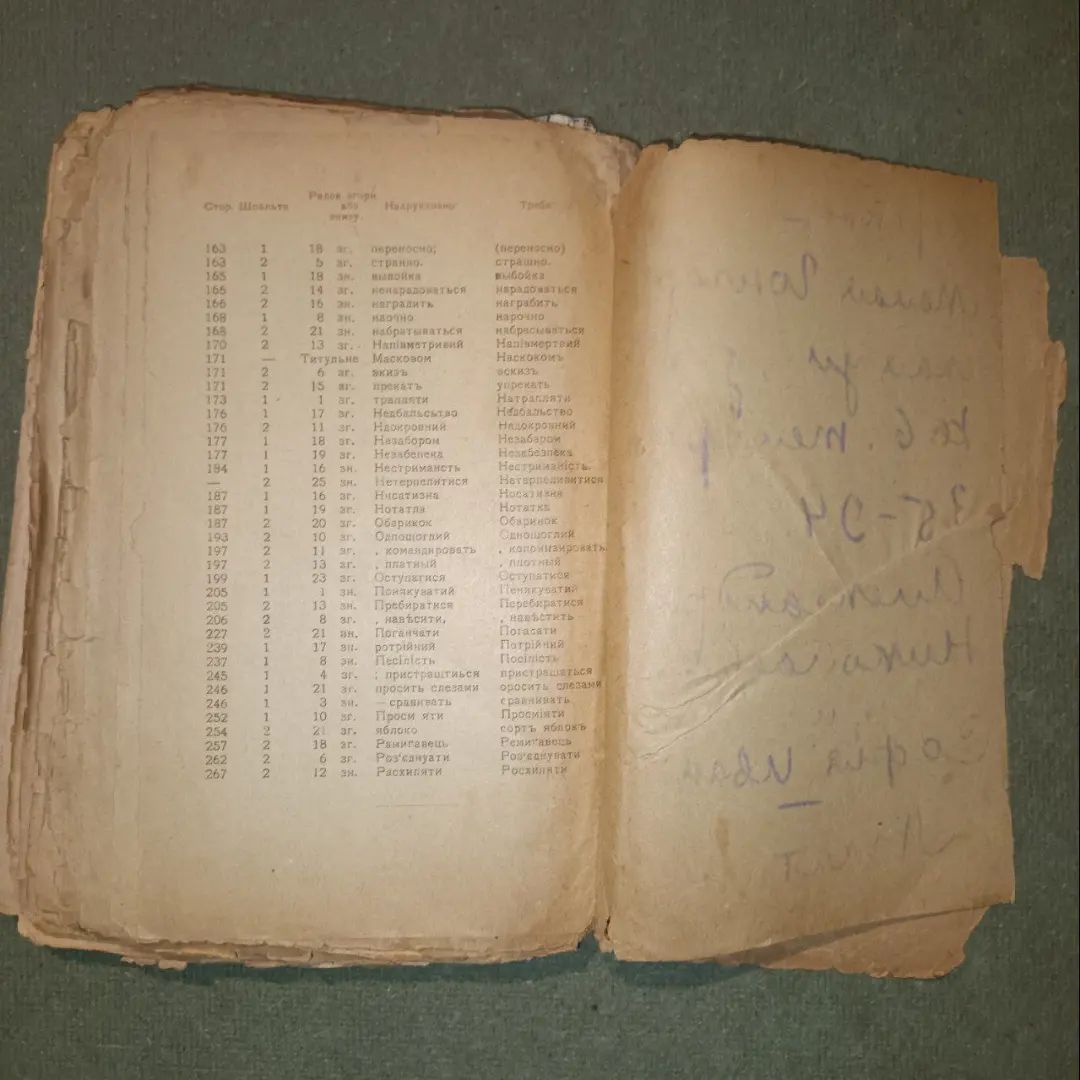 Рядок згори
Стор. Шпальта або Надруковано Треба
знизу.
163 1 18 зг. переносно; (переносно)
163 2 5 зг. странно. страшно.
165 1 18 зн. выпойка выбойка
165 2 14 зг. ненарадоваться нарадоваться
166 2 16 зн. наградить награбить
168 1 8 зн. наочно нарочно
168 2 21 зн. набратываться набрасываться
170 2 13 зг. Напівметривий Напівмертвий
171 — Титульне Масковом Наскокомъ
171 2 6 зг. экизъ эскизъ
171 2 15 зг. прекать упрекать
173 1 1 зг. трапляти Натрапляти
176 1 17 зг. Недбальсьтво Недбальство
176 2 11 зг. Ндокровний Надокровний
177 1 18 зг. Незабором Незабаром
177 1 19 зг. Незабепека Незабезпека
184 1 16 зн. Нестримансть Нестриманість.
— 2 25 зн. Нетерпелитися Натерпеливитися
187 1 16 зг. Ннсатизна Носатизна
187 1 19 зг. Нотатла Нотатка
187 2 20 зг. Обарикок Обаринок
193 2 10 зг. Одпошоглий Одношоглий
197 2 11 зг. , командировать , колонизировать
197 2 13 зг. , платный , плотный
199 1 23 зг. Оступагися Оступатися
205 1 1 зн. Понякуватий Пенякуватий
205 2 13 зн. Пребиратися Перебиратися
206 2 8 зг. , навѣсити, , навѣстить
227 2 21 зн. Поганчати Погасати
239 1 17 зн. ротрійний Потрійний
237 1 8 зн. Песіпість Посіпість
245 1 4 зг. ; пристращтиься пристращаться
246 1 21 зг. просить слезами оросить слезами
246 1 3 зн. — сравнивать сравнивать
252 1 10 зг. Проси яти Просміяти
254 2 21 зг. яблоко сортъ яблокъ
257 2 18 зг. Рамигавець Ремигавець
262 2 6 зг. Роз'єднуати Роз'єднувати
267 2 12 зн. Расхиляти Росхиляти
35-94